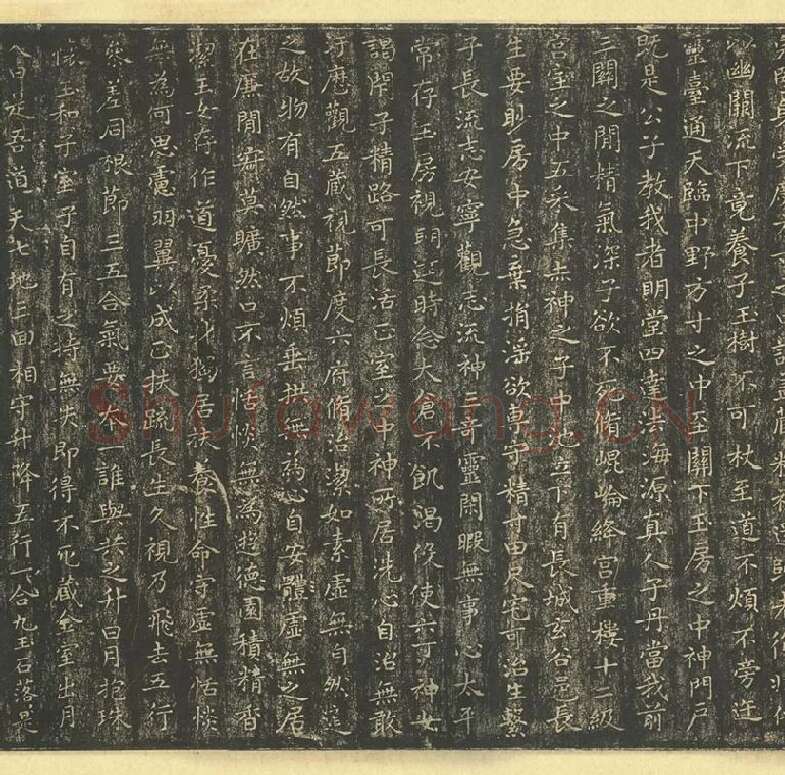 以幽關流下竟養子玉樹不可杖至道不煩不旁迕
靈臺通天臨中野方寸之中至關下玉房之中神門戶
既是公子教我者明堂四達法海源真人子丹當我前
三關之閒精氣深子欲不死脩崐崘絳宮重樓十二級
宮室之中五采集赤神之子中池立下有長城玄谷邑長
生要眇房中急棄捐淫欲專子精寸田尺宅可治生繫
子長流志安寧觀志流神三奇靈閑暇無事心太平
常存玉房視明達時念大倉不飢渴役使六丁神女
謁閉子精路可長活正室之中神所居洗心自治無敢
汙歷觀五藏視節度六府脩治潔如素虛無自然道
之故物有自然事不煩垂拱無為心自安體虛無之居
在廉閒寂莫曠然口不言恬惔無為遊德園積精香
潔玉女存作道憂柔身獨居扶養性命守虛無恬惔
無為何思慮羽翼以成正扶疏長生久視乃飛去五行
參差同根節三五合氣要本一誰與共之升日月抱珠
懷玉和子室子自有之持無失即得不死藏金室出月
入日是吾道天七地三回相守升降五行一合九玉石落是
Shufawang.CN